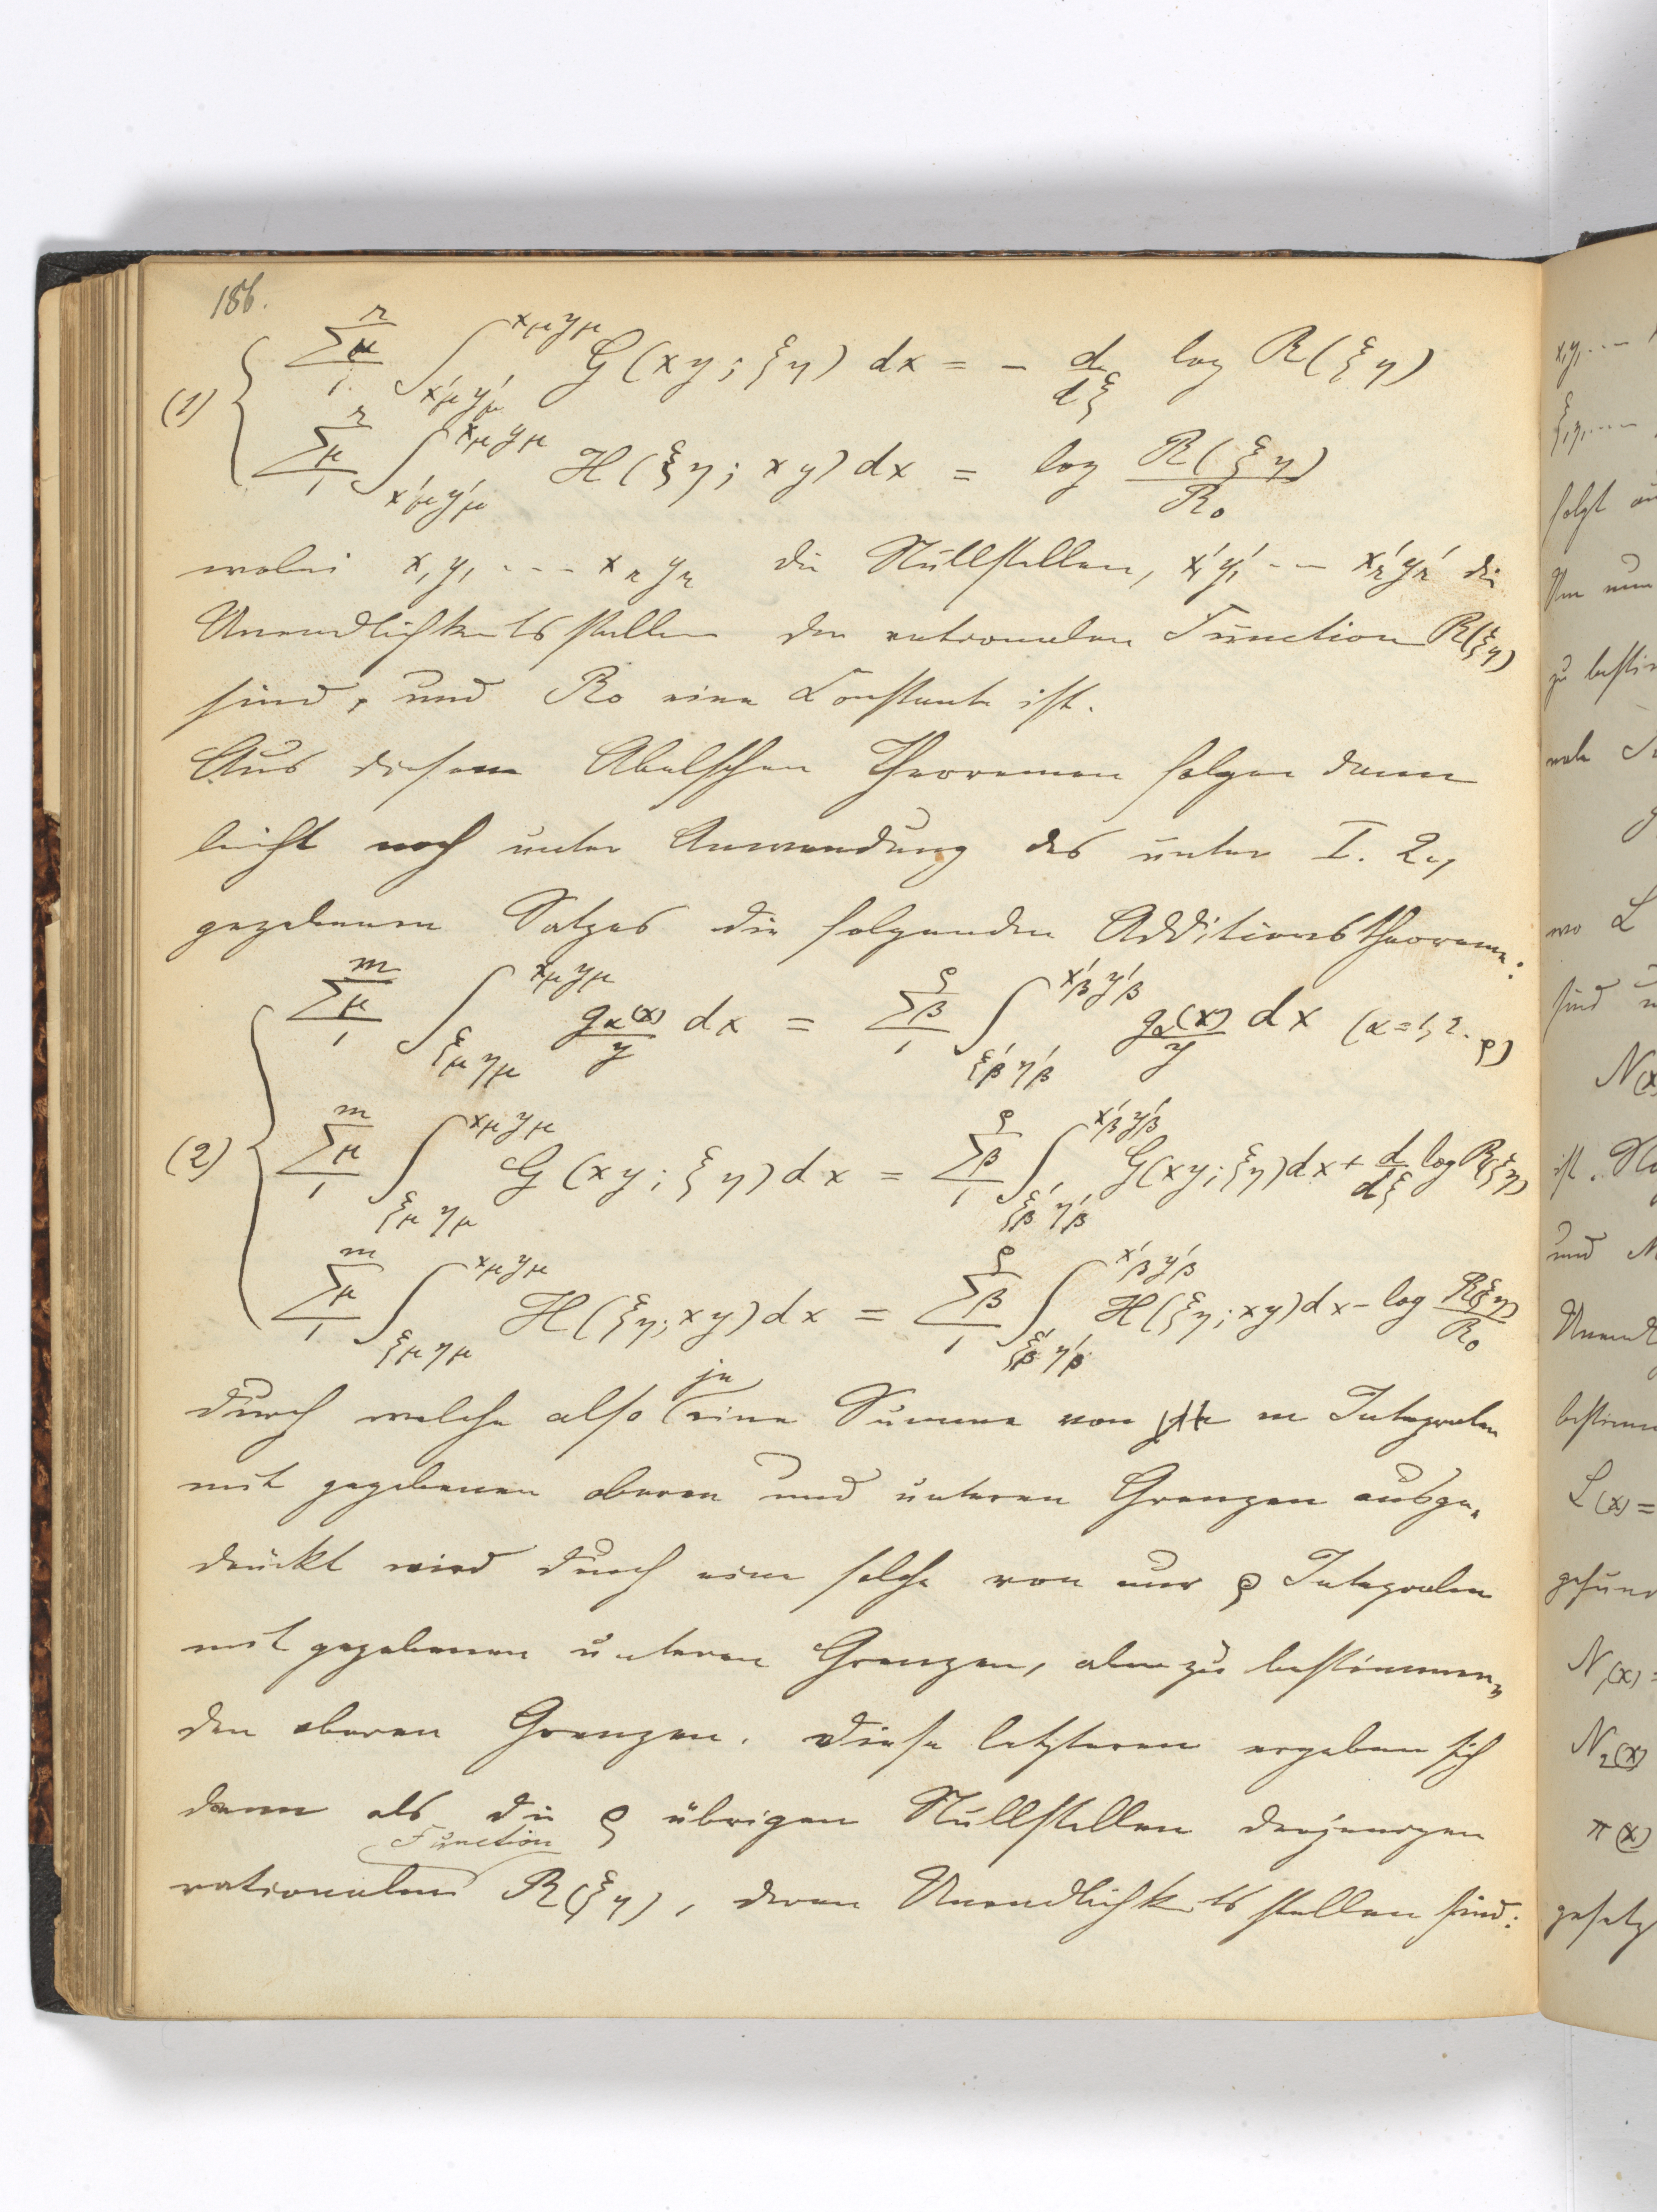 186.
(1) { \sum_{1}^{r}{}_{\mu} \int_{x'_\mu y'_\mu}^{x_\mu y_\mu} G(xy; ξη) dx = - \frac{d}{dξ} log R(ξη)
\sum_{1}^{r}{}_{\mu} \int_{x'_\mu y'_\mu}^{x_\mu y_\mu} H(ξη; xy) dx = log \frac{R(ξη)}{R_0}
wobei x_1 y_1 ---- x_r y_r die Nullstellen, x'_1 y'_1 --- x'_r y'_r die
Unendlichkeitsstellen der rationalen Function R(ξη)
sind, und R_0 eine Constante ist.
Aus diesem Abelschen Theoremen folgen dann
leicht noch unter Anwendung des unter I. 2.,
gegebenen Satzes die folgenden Additionstheoreme:
(2) { \sum_{1}^{m}{}_{\mu} \int_{ξ_\mu η_\mu}^{x_\mu y_\mu} \frac{g_α(x)}{y} dx = \sum_{1}^{ρ}{}_{β} \int_{ξ'_β η'_β}^{x'_β y'_β} \frac{g_α(x)}{y} dx (α = 1, 2. ρ)
\sum_{1}^{m}{}_{\mu} \int_{ξ_\mu η_\mu}^{x_\mu y_\mu} G(xy; ξη) dx = \sum_{1}^{ρ}{}_{β} \int_{ξ'_β η'_β}^{x'_β y'_β} G(xy; ξη) dx + \frac{d}{dξ} log R(ξη)
\sum_{1}^{m}{}_{\mu} \int_{ξ_\mu η_\mu}^{x_\mu y_\mu} H(ξη; xy) dx = \sum_{1}^{ρ}{}_{β} \int_{ξ'_β η'_β}^{x'_β y'_β} H(ξη; xy) dx - log \frac{R(ξη)}{R_0}
durch welche also je eine Summe von m Integralen
mit gegebenen oberen und unteren Grenzen ausge-
drückt wird durch eine solche von nur ρ Integralen
mit gegebenen unteren Grenzen, aber zu bestimmen-
den oberen Grenzen. Diese letzteren ergeben sich
dann als die ρ übrigen Nullstellen derjenigen
rationalen Function R(ξη), deren Unendlichkeitsstellen sind: